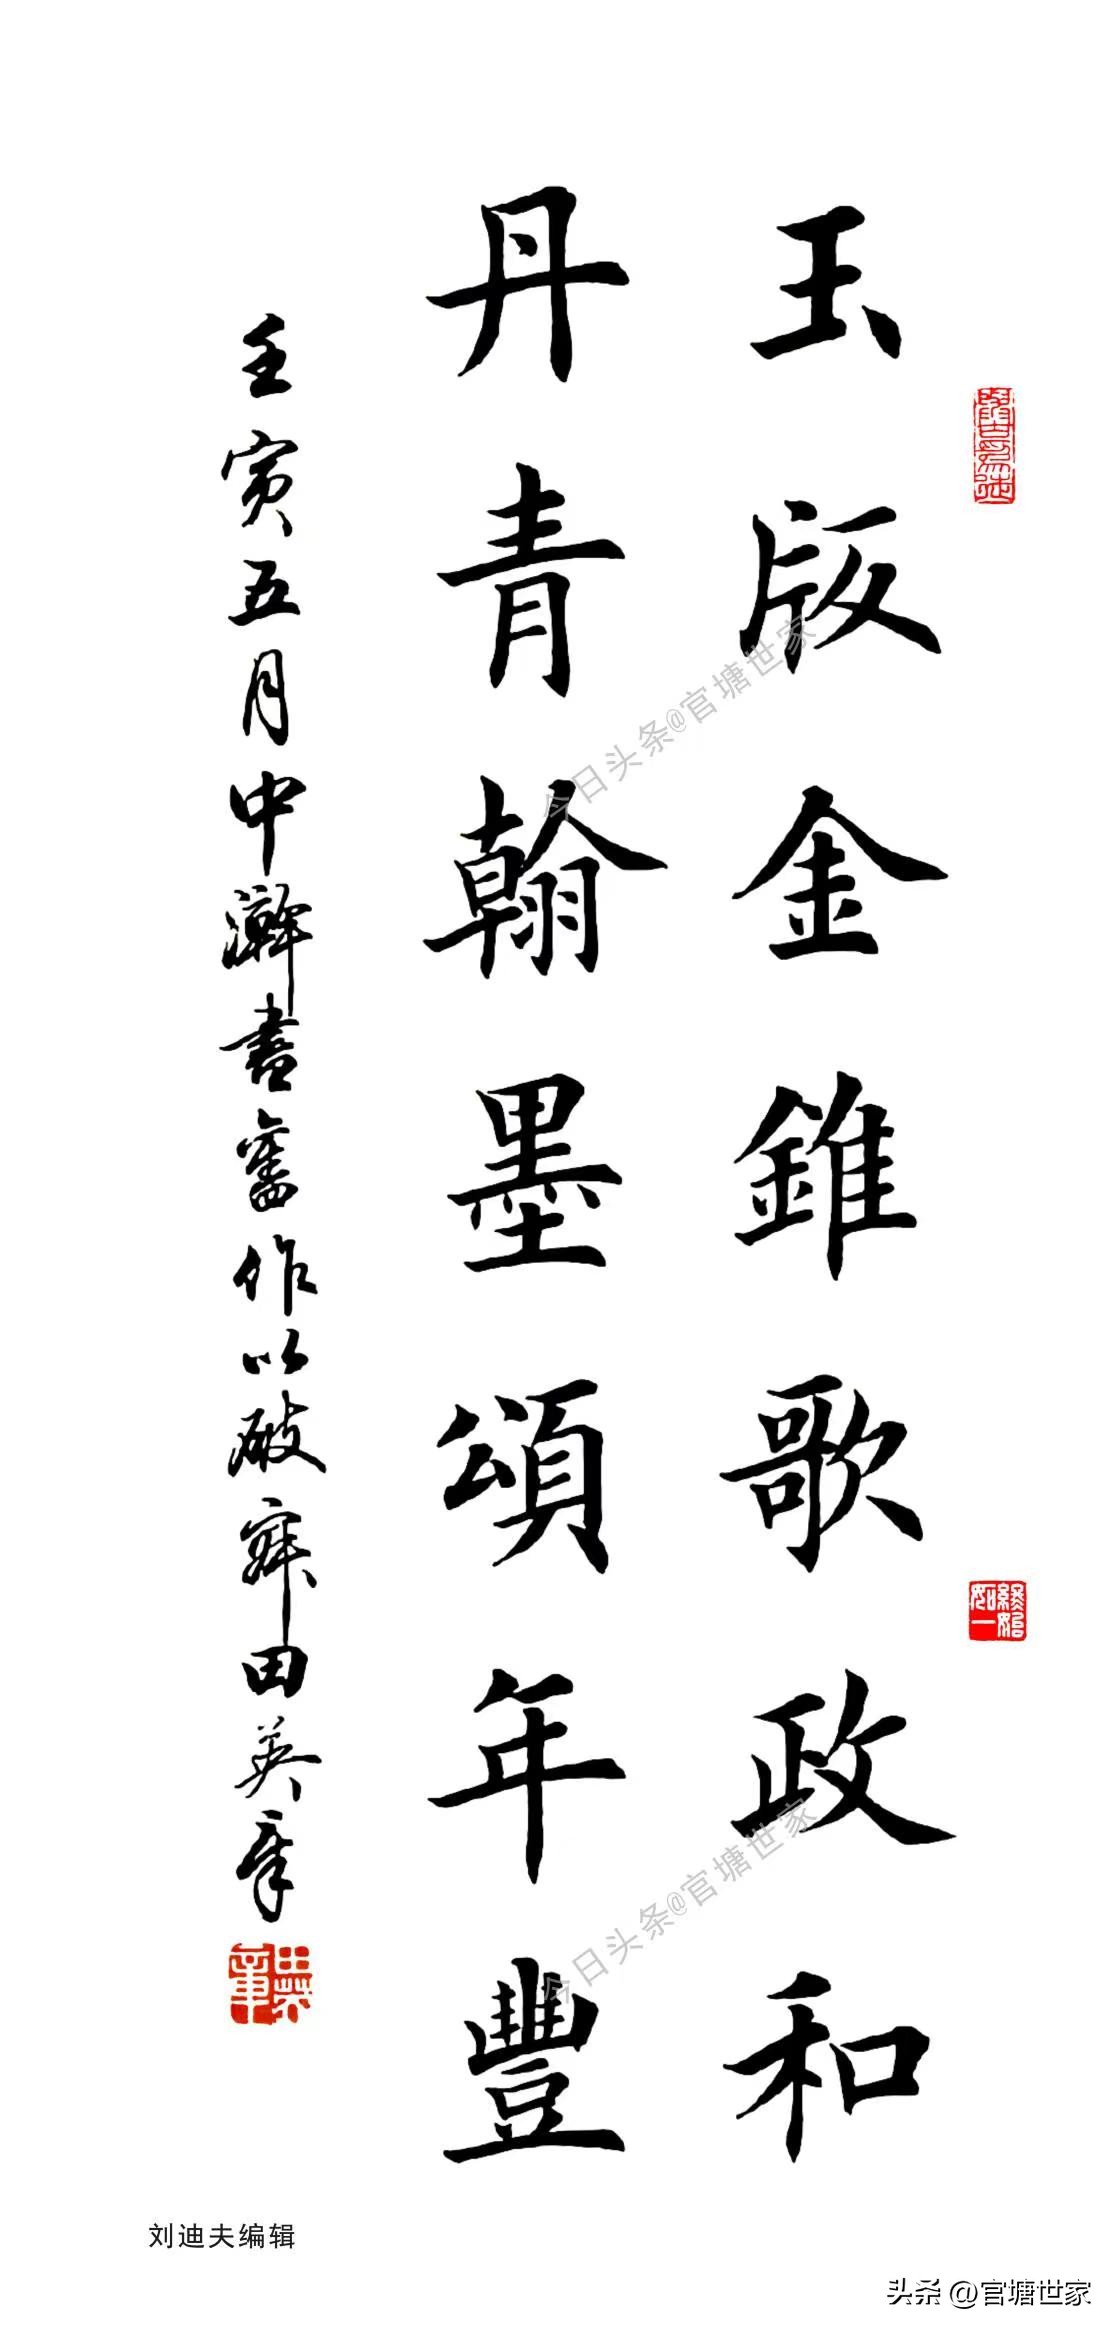 玉版金錐歌政和
丹青翰墨頌年豐
壬寅五月中澣書舊作以破寂田英章
終始如一
英章
今日头条@官塘世家
今日头条@官塘世家
刘迪夫编辑
头条 @官塘世家